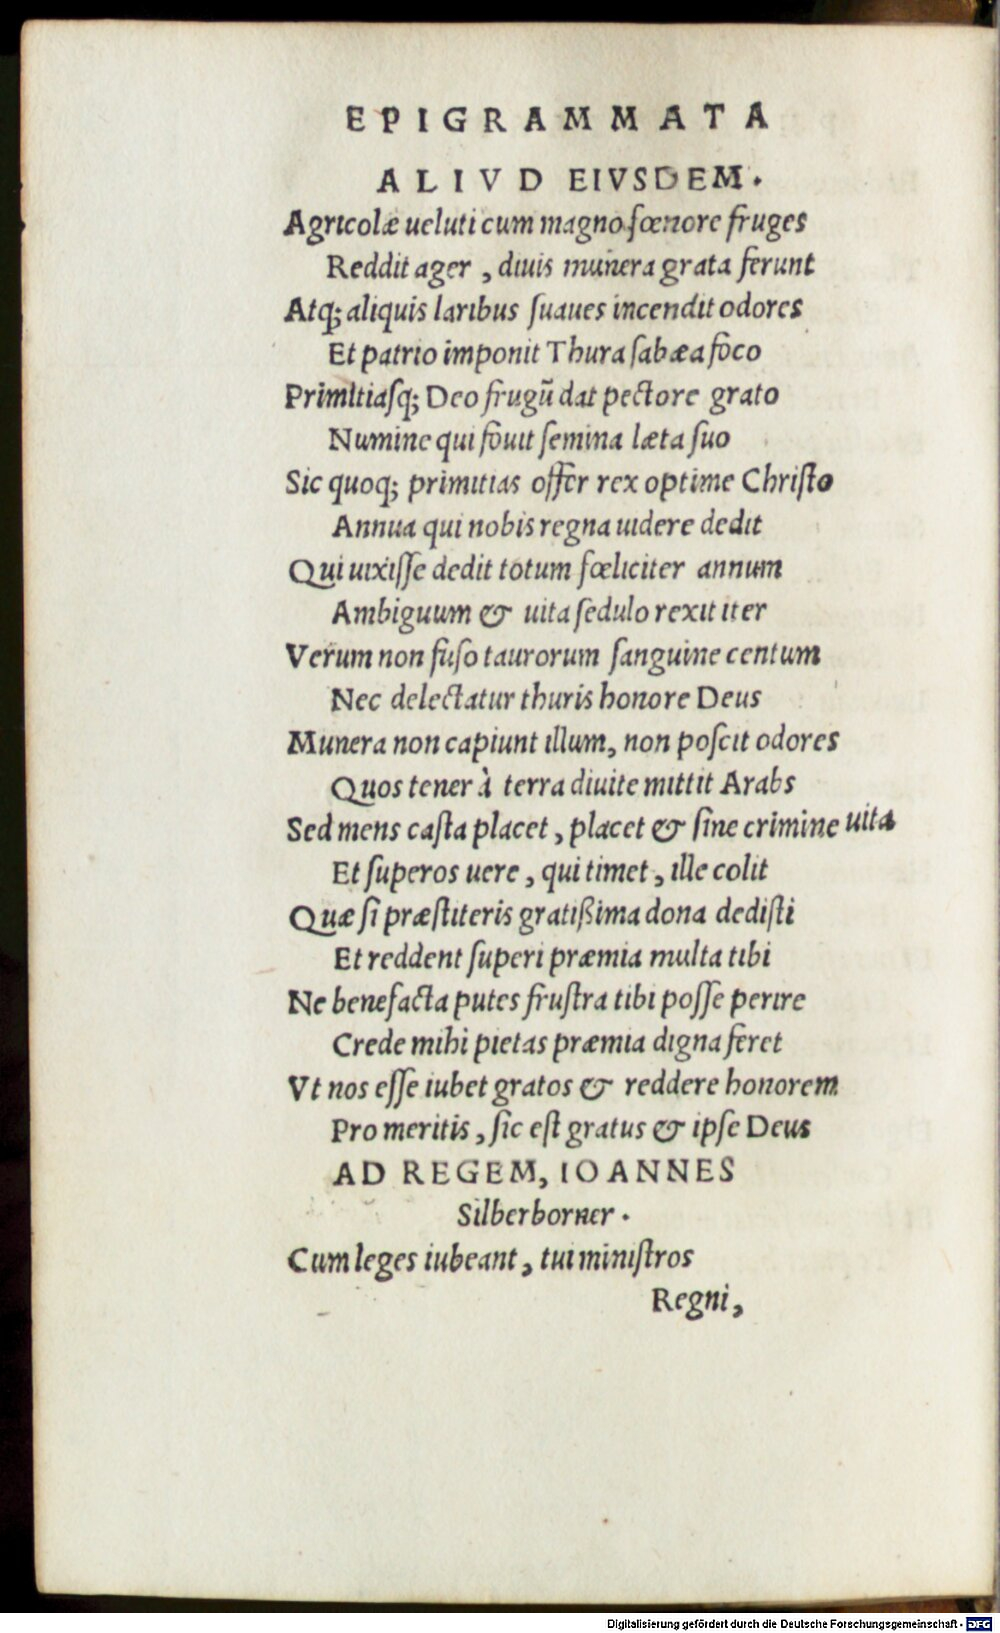 EPIGRAMMATA
ALIVD EIVSDEM.
Agricolæ ueluti cum magno fœnore fruges
Reddit ager , diuis munera grata ferunt
Atq; aliquis laribus ſuaues incendit odores
Et patrio imponit Thura ſabæa foco
Primitiaſq; Deo frugũ dat pectore grato
Numine qui fouit ſemina læta ſuo
Sic quoq; primitias offer rex optime Chriſto
Annua qui nobis regna uidere dedit
Qui uixiſſe dedit totum fœliciter annum
Ambiguum & uita ſedulo rexit iter
Verum non fuſo taurorum ſanguine centum
Nec delectatur thuris honore Deus
Munera non capiunt illum, non poſcit odores
Quos tener à terra diuite mittit Arabs
Sed mens caſta placet , placet & ſine crimine uita
Et ſuperos uere , qui timet , ille colit
Quæ ſi præſtiteris gratißima dona dediſti
Et reddent ſuperi præmia multa tibi
Ne benefacta putes fruſtra tibi poſſe perire
Crede mihi pietas præmia digna feret
Vt nos eſſe iubet gratos & reddere honorem
Pro meritis , ſic eſt gratus & ipſe Deus
AD REGEM, IOANNES
Silberborner.
Cum leges iubeant , tui miniſtros
Regni,
Digitalisierung gefördert durch die Deutsche Forschungsgemeinschaft - DFG